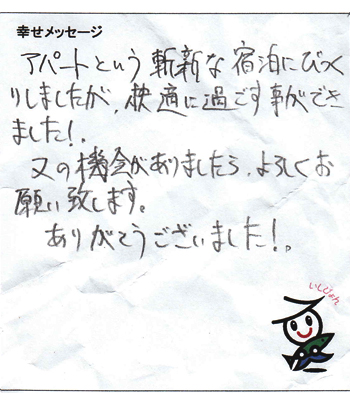 幸せメッセージ
アパートという斬新な宿泊にびっく
りしましたが、快適に過ごす事ができ
ました!。
又の機会がありましたら、よろしくお
願い致します。
ありがとうございました!。